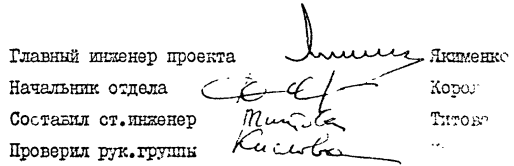 Главный инженер проекта Якименко
Начальник отдела Корол
Составил ст.инженер Титова Титова
Проверил рук.группы